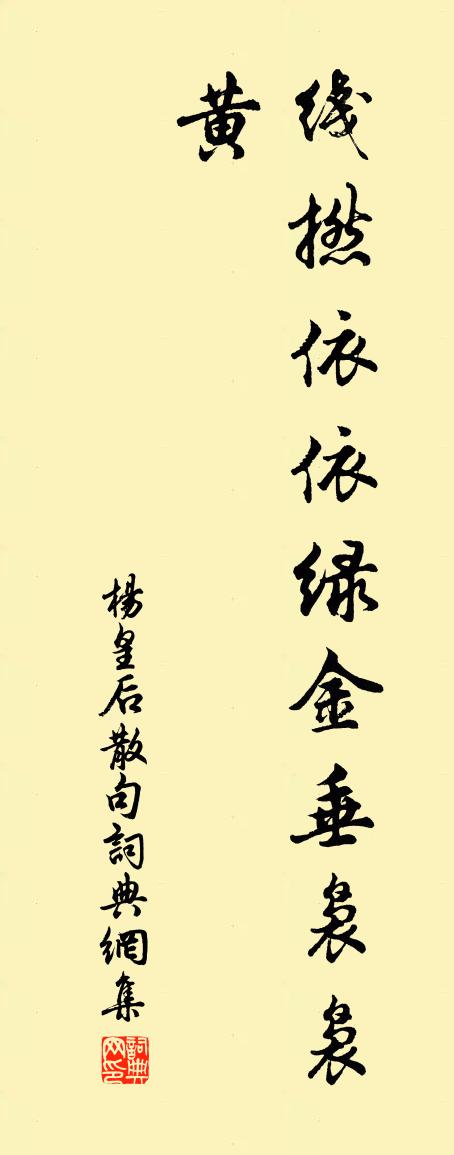 綫撚依依綠金垂裊裊
黃
楊皇后散句詞典網集
詞典
网印